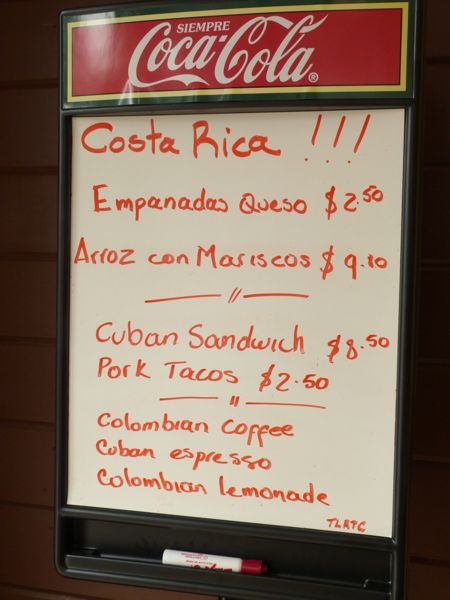 SIEMPRE
Coca-Cola®
Costa Rica !!!
Empanadas Queso $2.50
Arroz con Mariscos $9.10
Cuban Sandwich $8.50
Pork Tacos $2.50
Colombian coffee
Cuban espresso
Colombian lemonade